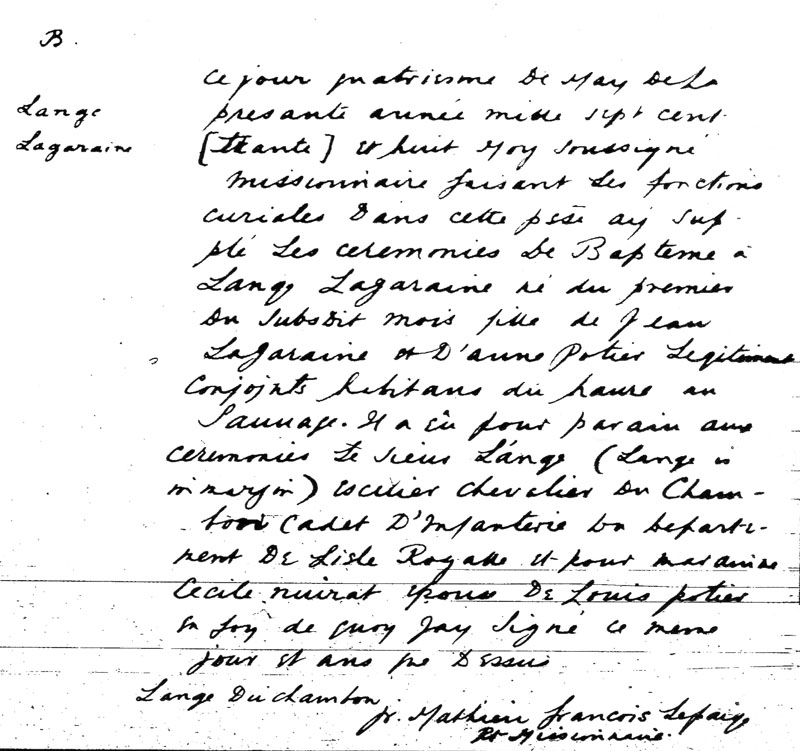 B.
Lange
Lagaraine
Ce jour quatriesme De May De La
presante année mille sept cent
[trante] et huit Moy soussigné
missionnaire faisant Les fonctions
curiales Dans cette psse ay sup-
plé Les ceremonies De Bapteme a
Lange Lagaraine né du premier
Du susdit mois fille de Jean
Lagaraine et D'anne Potier Legitiment
Conjoints habitans du havre au
Sauvage. Il a eû pour parain aux
ceremonies Le Sieur Lánge (Lange is
in margin) Escuier chevalier Du Cham-
bon Cadet D'Infanterie Du Departe-
ment De Lisle Royalle et pour maraine
Cecile nuirat epouse De Louis potier
En foy de quoy Jay Signé ce meme
jour et ans que Dessus
Lange Duchambon
fr. Mathieu françois Lepaige
Rt Missionnaire.